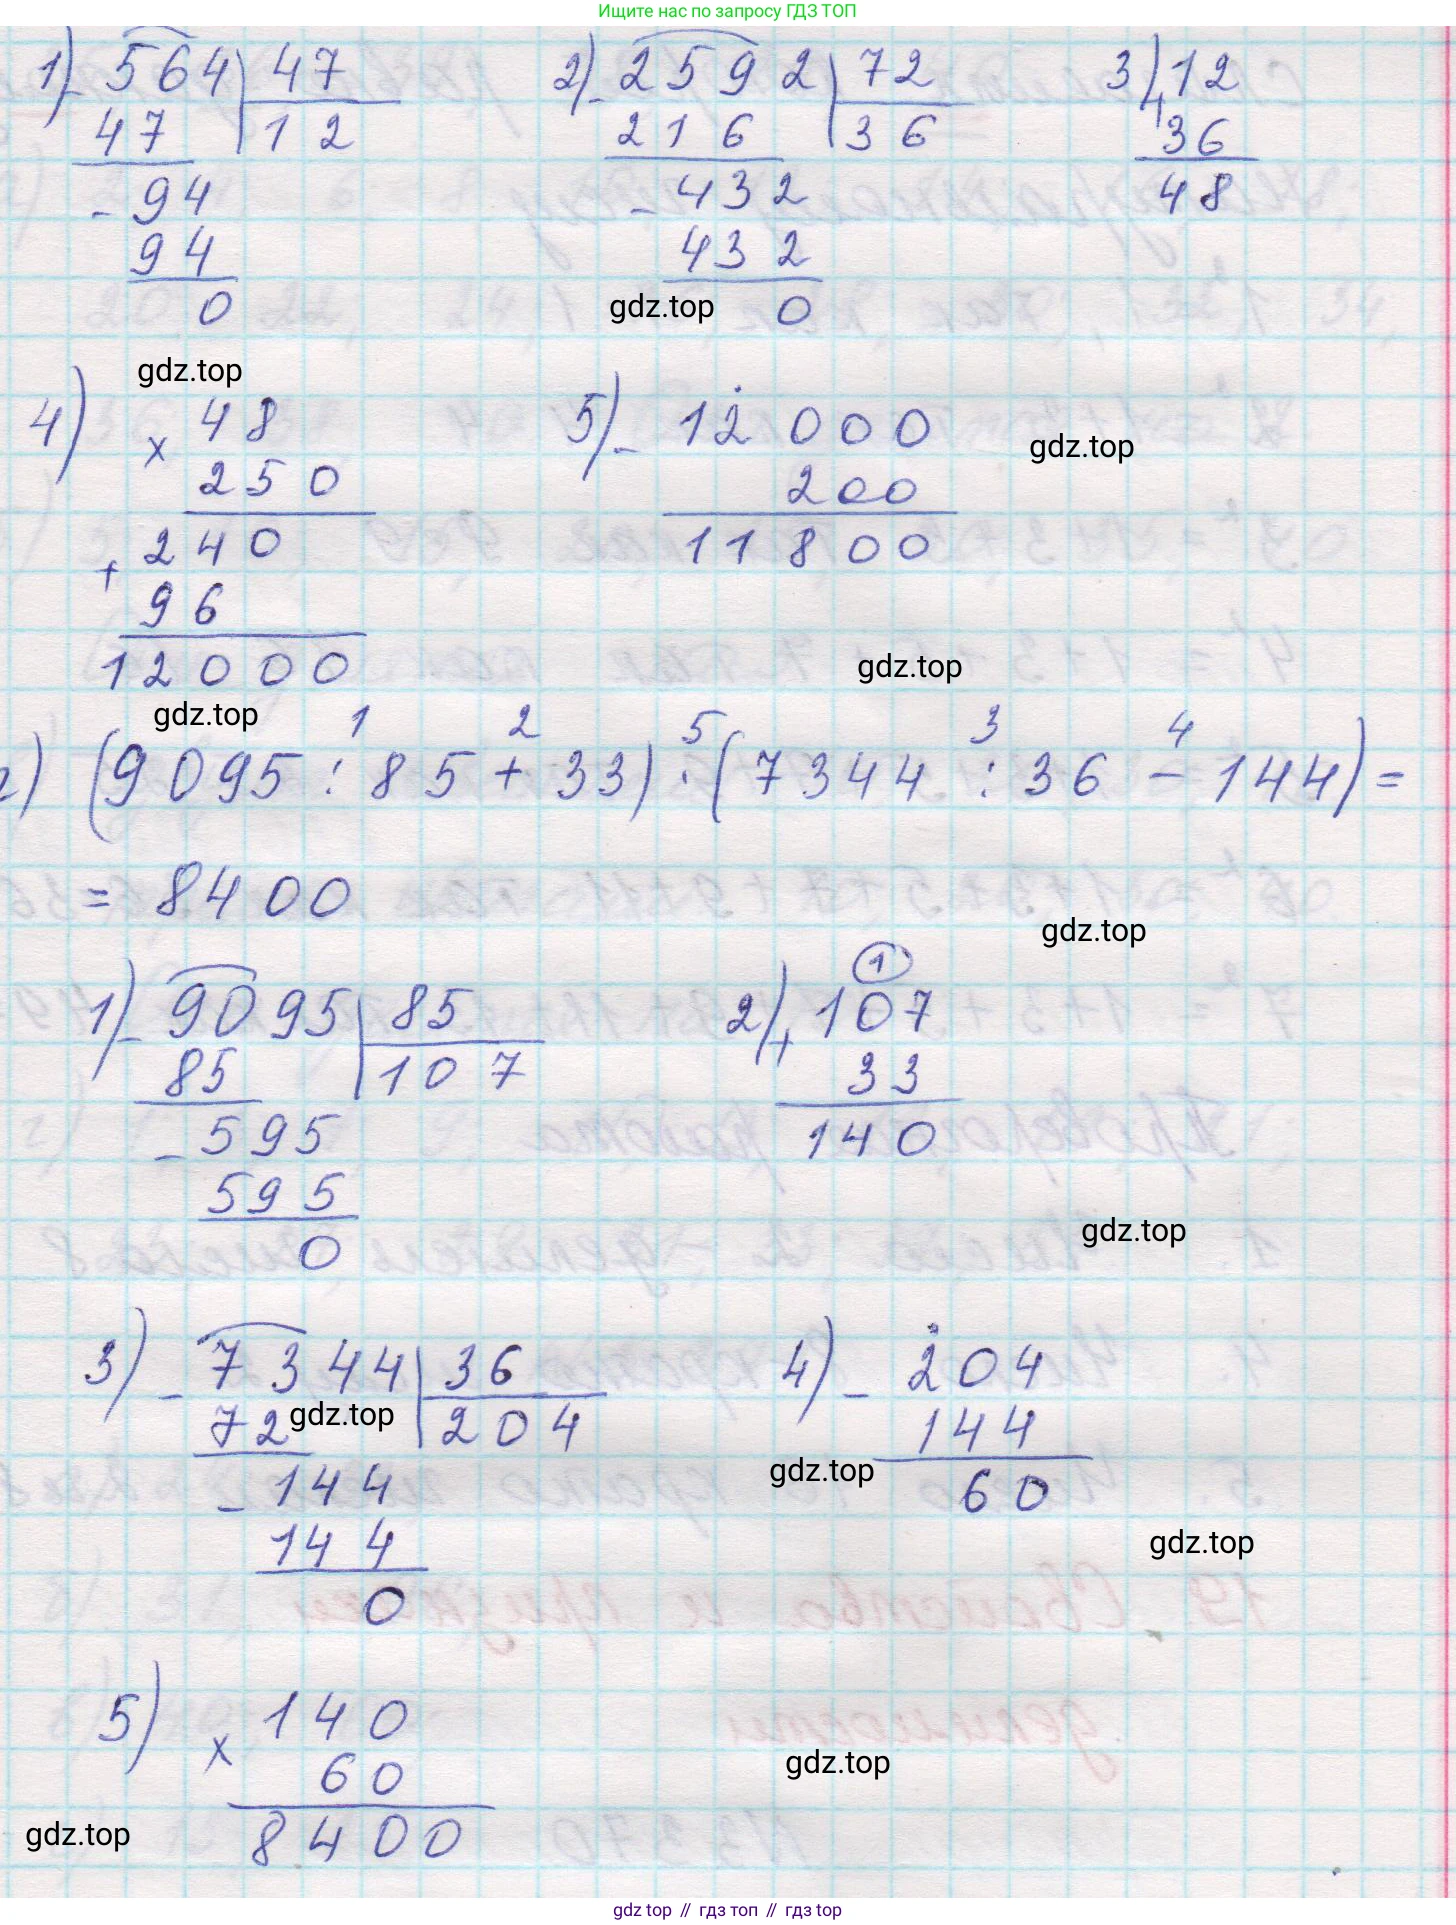 Ищите нас по запросу ГДЗ ТОП
1) - 564 | 47
47 | 12
- 94
94
0
2) - 2592 | 72
216 | 36
- 432
432
0
3) + 12
36
48
gdz.top
gdz.top
4) × 48
250
+ 240
96
12000
5) - 12000
200
11800
gdz.top
gdz.top
gdz.top
1 2 5 3 4
г) (9095 : 85 + 33) · (7344 : 36 - 144) =
= 8400
gdz.top
1) - 9095 | 85
85 | 107
- 595
595
0
2) + 107
33
140
1
gdz.top
3) - 7344 | 36
72 | 204
- 144
144
0
gdz.top
4) - 204
144
60
gdz.top
gdz.top
5) × 140
60
8400
gdz.top
gdz.top
gdz top // гдз топ // гдз top